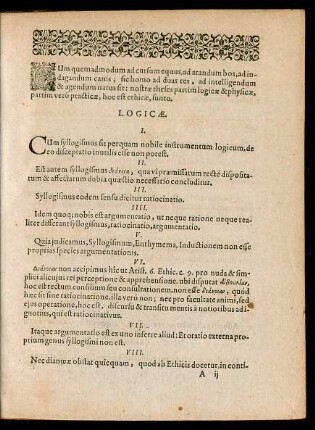 CUm quemadmodum ad cursum equus, ad arandum bos, ad in-
dagandum canis; sic homo ad duas res, ad intelligendum
& agendum natus sit: nostræ theses partim logicæ & physicæ,
partim verò practicæ, hoc est ethicæ, sunto.
LOGICÆ.
I.
CUm syllogismus sit perquam nobile instrumentum logicum, de
eo disceptatio inutilis esse non potest.
II.
Est autem syllogismus quâ vi præmissarum rectè disposita-
rum & affectarum dubia quæstio necessariò concluditur.
III.
Syllogismus eodem sensu dicitur ratiocinatio.
IIII.
Idem quoq; nobis est argumentatio, ut neque ratione neque rea-
liter differant syllogismus, ratiocinatio, argumentatio.
V.
Quia judicamus, Syllogismum, Enthymema, Inductionem non esse
proprias species argumentationis.
VI.
non accipimus hîc ut Arist. 6. Ethic. c. 9. pro nuda & sim-
plici alicujus rei perceptione & apprehensione. ubi disputat
hoc est rectum consilium seu consultationem. non esse quòd
hæc sit sine ratiocinatione, illa verò non; nec pro facultate animi, sed
ejus operatione, hoc est, discursu & transitu mentis à notioribus ad i-
gnotius, qui est ratiocinantibus.
VII.
Itaque argumentatio est ex uno inferre aliud: Et oratio externa pro-
prium genus syllogismi non est.
VIII.
Nec obstat quicquam, quod ab Ethicis docetur, in conti-
A ij